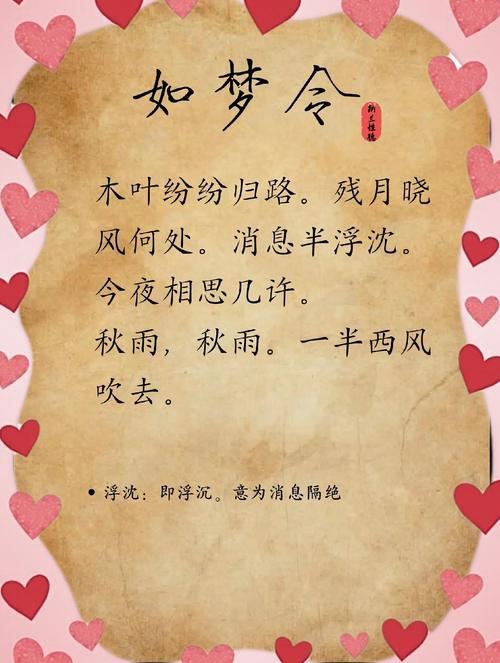 如梦令
纳兰性德
木叶纷纷归路。残月晓
风何处。消息半浮沈。
今夜相思几许。
秋雨，秋雨。一半西风
吹去。
• 浮沈：即浮沉。意为消息隔绝